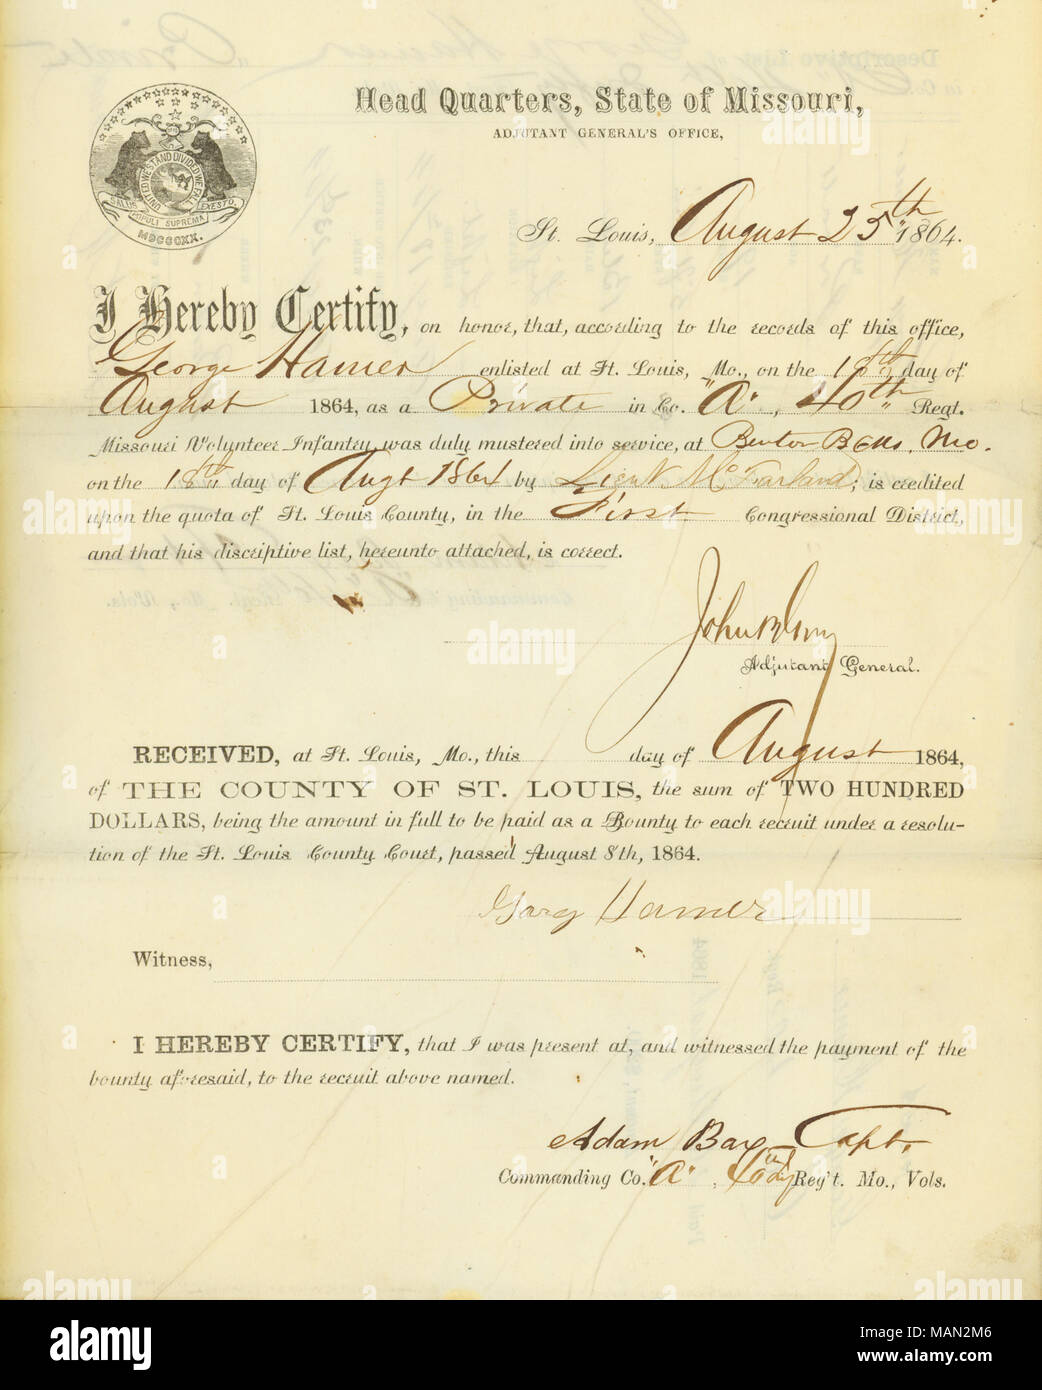 Head Quarters, State of Missouri,
ADJUTANT GENERAL'S OFFICE,
UNITED WE STAND DIVIDED WE FALL
SALUS POPULI SUPREMA EXESTO
MDCCCXX.
St. Louis, August 25th 1864.
I Hereby Certify, on honor, that, according to the records of this office,
George Hamer enlisted at St. Louis, Mo., on the 18th day of
August 1864, as a Private in Co. "A", 40th Regt.
Missouri Volunteer Infantry, was duly mustered into service, at Benton Bks. Mo.
on the 18th day of Augt 1864 by Lieut. McFarland; is credited
upon the quota of St. Louis County, in the First Congressional District,
and that his discriptive list, hereunto attached, is correct.
John B Gray
Adjutant General.
RECEIVED, at St. Louis, Mo., this day of August 1864,
of THE COUNTY OF ST. LOUIS, the sum of TWO HUNDRED
DOLLARS, being the amount in full to be paid as a Bounty to each recruit under a resolu-
tion of the St. Louis County Court, passed August 8th, 1864.
Garg Hamer
Witness,
I HEREBY CERTIFY, that I was present at, and witnessed the payment of the
bounty aforesaid, to the recruit above named.
Adam Bax Capt.
Commanding Co. "A", 40 Reg't. Mo., Vols.
alamy
Image ID: MAN2M6
www.alamy.com